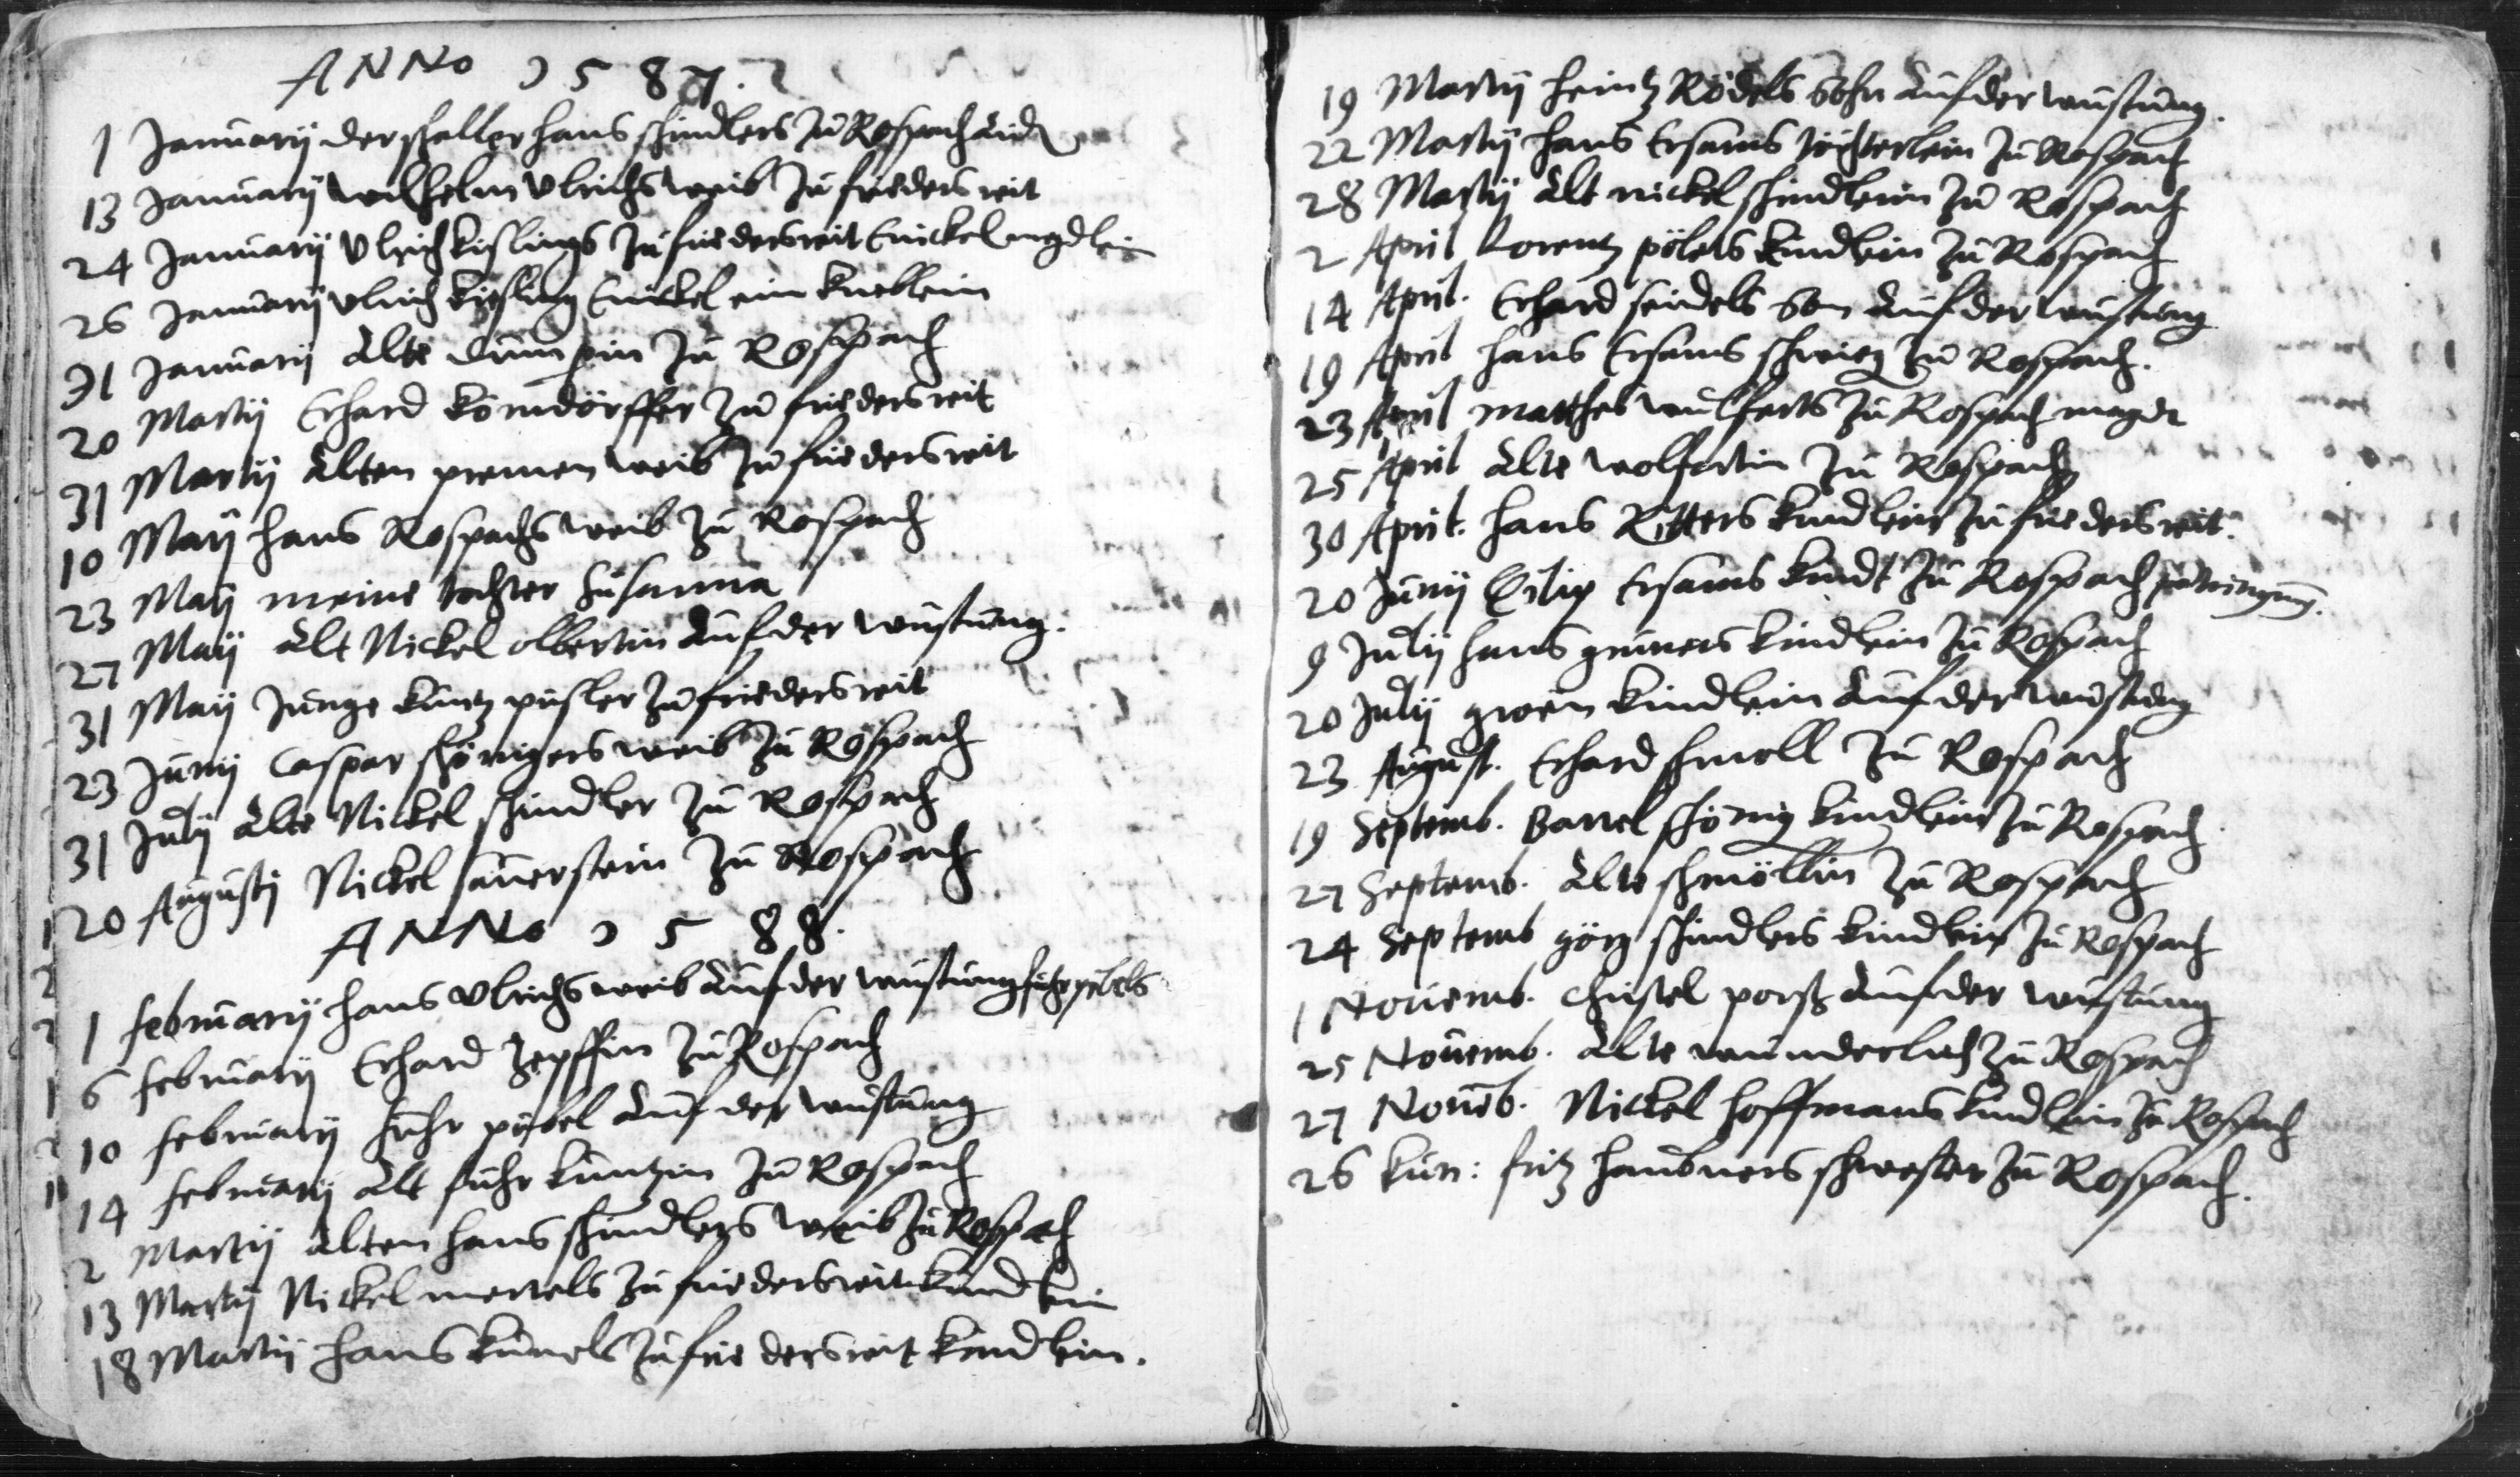 ANNo 1587.
1 Januarij der hans schindlers zu Rospach
13 Januarij wilhelm Vlrichs weib zu friedersreit
24 Januarij Vlrich kislings zu friedersreit Enickel megdlein
26 Januarij vlrich kisling Enickel ein kneblein
31 Januarij Alte zu Rospach
20 Martij Erhard korndörffer zu friedersreit
31 Martij Alten weib zu friedersreit
10 Maij hans Rospachs weib zu Rospach
23 Maij meine tochter Susanna
27 Maij Alt Nickel olbertin auf der wustung.
31 Maij Junge kuntz pusler zu friedersreit
23 Junij Caspar weib zu Rospach
31 Julij Alte Nickel schindler zu Rospach
20 Augustj Nickel saurstein zu Rospach
ANNo 1588.
1 februarij hans Vlrichs weib auf der wustung
6 februarij Erhard zepffin zu Rospach
10 februarij auf der wustung
14 februarij Alt fuhr kuntzin zu Rospach
2 Martij Alten hans schindlers weib zu Rospach
13 Martij Nickel mertels zu friedersreit kindlein
18 Martij hans kunels zu friedersreit kindlein.
19 Martij heintz Rödels sohn auf der wustung.
22 Martij hans Ersams töchterlein zu Rospach
28 Martij Alt nickel schindlerin zu Rospach
2 April Lorentz pölers kindlein zu Rospach
14 April. Erhard seidels son auf der wustung
19 April hans Ersams zu Rospach.
23 April matthes wulferts zu Rospach magdt
25 April Alte wolfertin zu Rospach
30 April. hans Ritters kindlein zu friedersreit.
20 Junij Ersams kindt zu Rospach
9 Julij hans gruners kindlein zu Rospach
20 Julij kindlein auf der wustung
23 August. Erhard schmoll zu Rospach
19 Septemb. Bartel schönig kindlein zu Rospach
27 Septemb. Alte schmöllin zu Rospach
24 Septemb görg schindlers kindlein zu Rospach
1 Nouemb. Christel auf der wustung
25 Nouemb. Alte wunderlich zu Rospach
27 Nouēb. Nickel hoffmans kindlein zu Rospach
26 fritz haubners schwester zu Rospach.